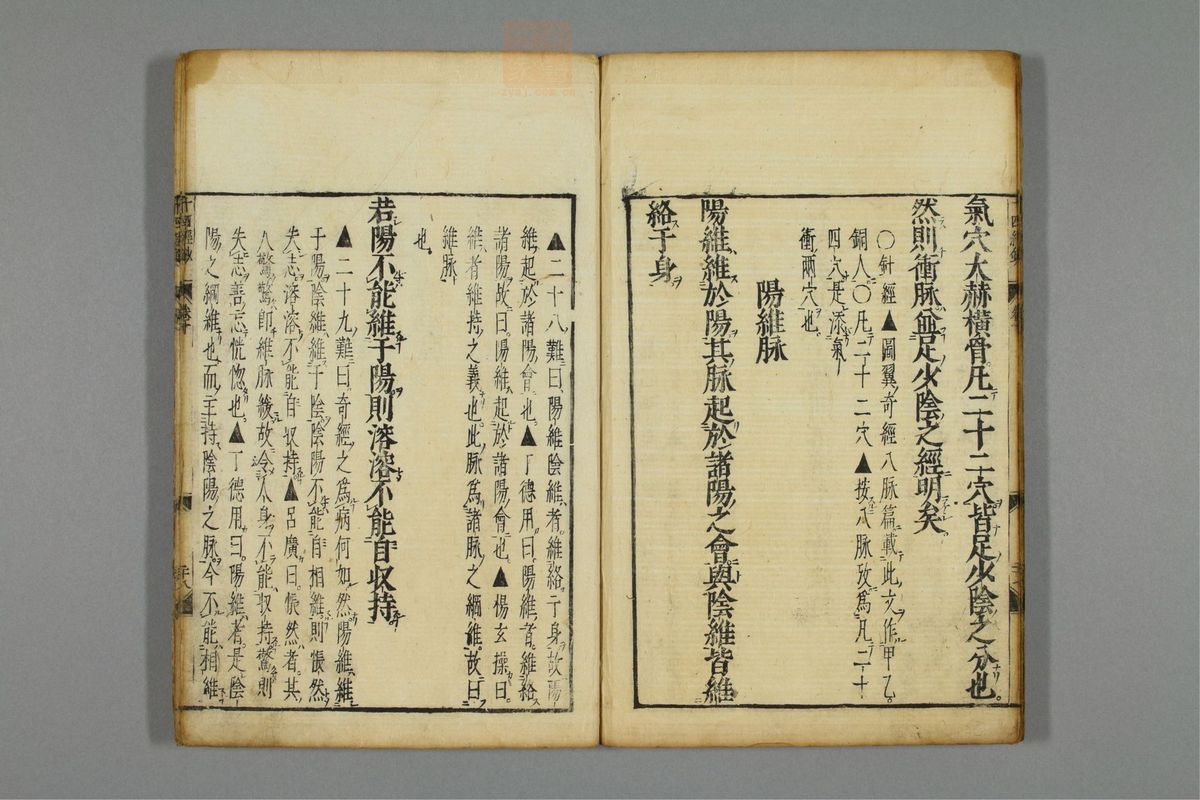 氣穴大赫橫骨凡二十二穴皆足少陰之分也
然則衝脉並足少陰之經明矣
○針經▲圖翼奇經八脉篇載此文作甲乙
銅人○凡二十二穴▲按八脉攷爲凡二十
四穴是添氣
衝兩穴也
陽維脉
陽維維於陽其脉起於諸陽之會與陰維皆維
絡于身
▲二十八難曰陽維陰維者維絡于身故陽
維起於諸陽會也▲丁德用曰陽維者維絡
諸陽故曰陽維起於諸陽會也▲楊玄操曰
維者維持之義也此脉爲諸脉之綱維故曰
維脉
也
若陽不能維于陽則溶溶不能自収持
▲二十九難曰奇經之爲病何如然陽維維
于陽陰維維于陰陰陽不能自相維則悵然
失志溶溶不能自収持▲呂廣曰悵然者其
人驚驚卽維脉緩故令人身不能収持驚則
失志善忘恍惚也▲丁德用曰陽維者是陰
陽之綱維也而主持陰陽之脉今不能相維
zysj.com.cn